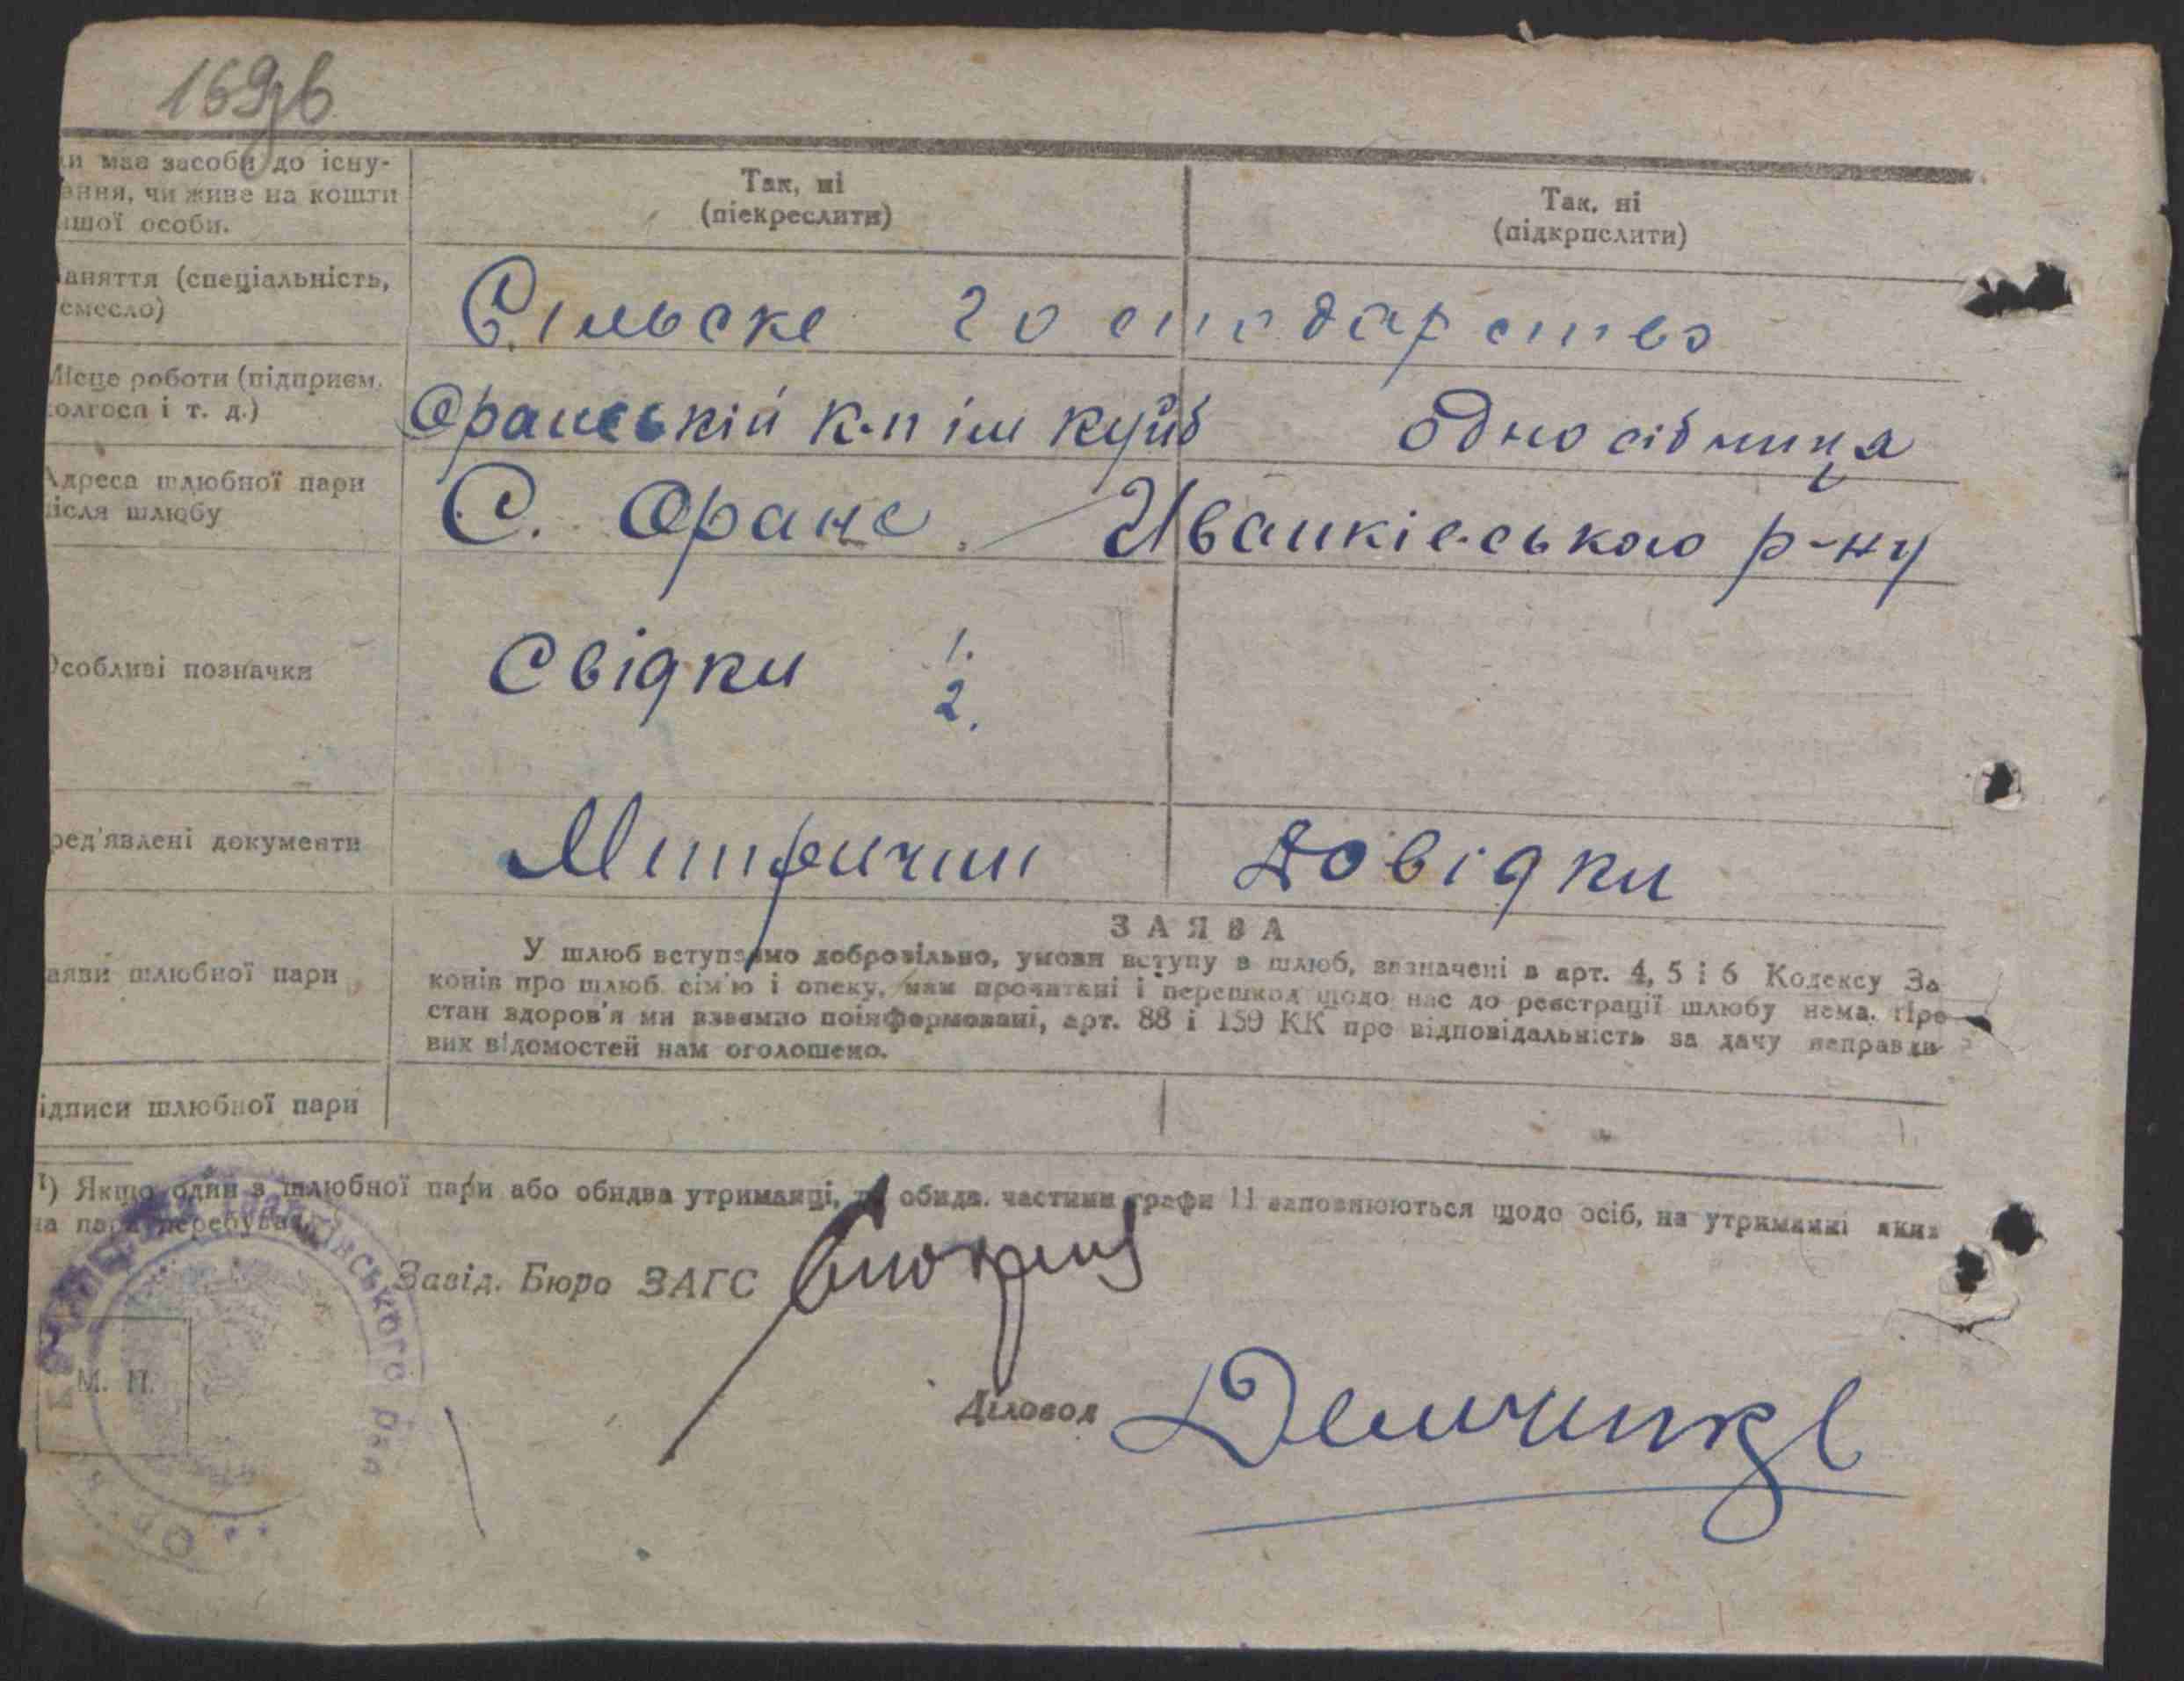 169зв
ки має засоби до існу-
вання, чи живе на кошти
іншої особи.
Так, ні
(піекреслити)
Так, ні
(підкрпслити)
заняття (спеціальність,
ремесло)
Сільське господарство
Місце роботи (підприєм.
колгосп і т. д.)
Оранській к-п ім Куйб
одно сібница
Адреса шлюбної пари
після шлюбу
С. Оране. Иванківського р-ну
Особливі позначки
Свідки 1.
2.
ред'явлені документи
Митричні
Довідки
ЗАЯВА
аяви шлюбної пари
У шлюб вступаємо добровільно, умови вступу в шлюб, зазначені в арт. 4, 5 і 6 Кодексу За
конів про шлюб. сім'ю і опеку, нам прочитані і перешкод щодо нас до реєстрації шлюбу нема. Про
стан здоров'я ми взаємно поінформовані, арт. 88 і 159 КК про відповідальність за дачу неправди
вих відомостей нам оголошено.
ідписи шлюбної пари
1) Якщо один з шлюбної пари або обидва утриманці, то обидв. частини графи 11 заповнюються щодо осіб, на утриманні яких
на пара перебуває.
Завід. Бюро ЗАГС
М. П.
Діловод Демченко